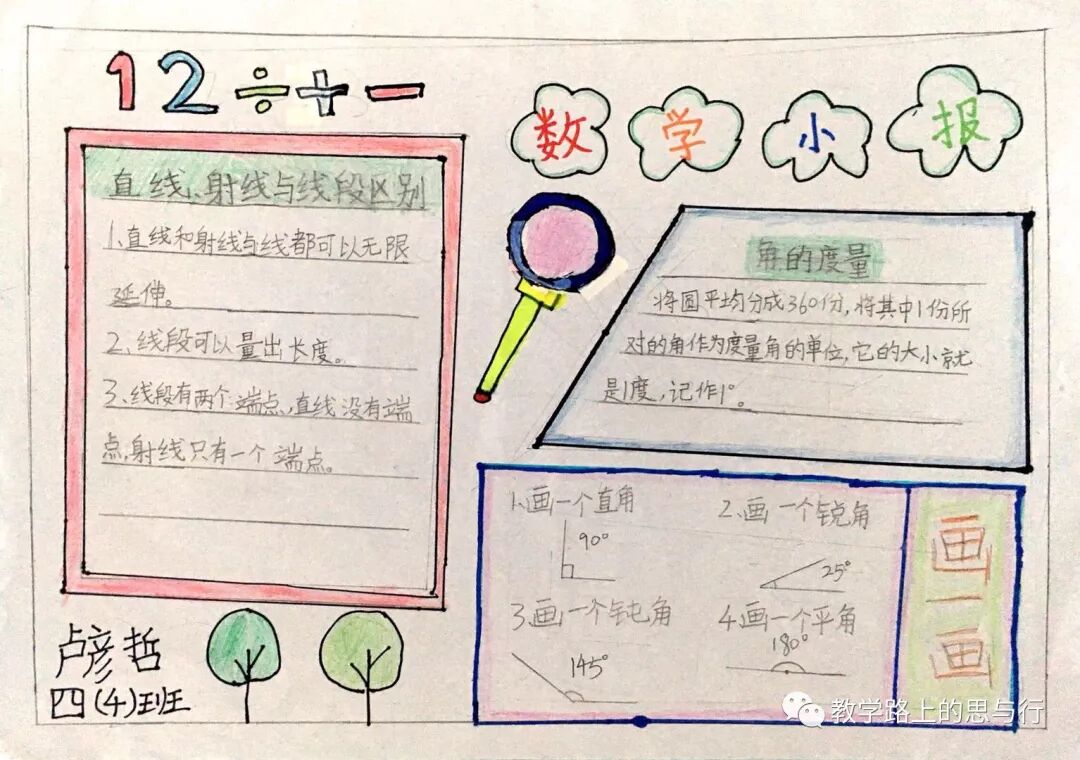 12÷+-
数学小报
直线、射线与线段区别
1、直线和射线与线都可以无限
延伸。
2、线段可以量出长度。
3、线段有两个端点、直线没有端
点,射线只有一个端点。
角的度量
将圆平均分成360份,将其中1份所
对的角作为度量角的单位,它的大小就
是1度,记作1°。
1、画一个直角
90°
2、画一个锐角
25°
3、画一个钝角
145°
4、画一个平角
180°
画一画
卢彦哲
四(4)班
教学路上的思与行